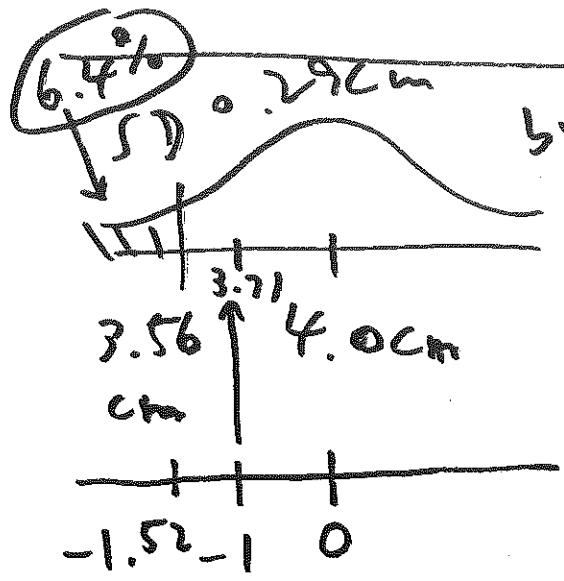 6.4%
SD 0.29cm
3.71
3.56 4.0cm
cm
-1.52 -1 0